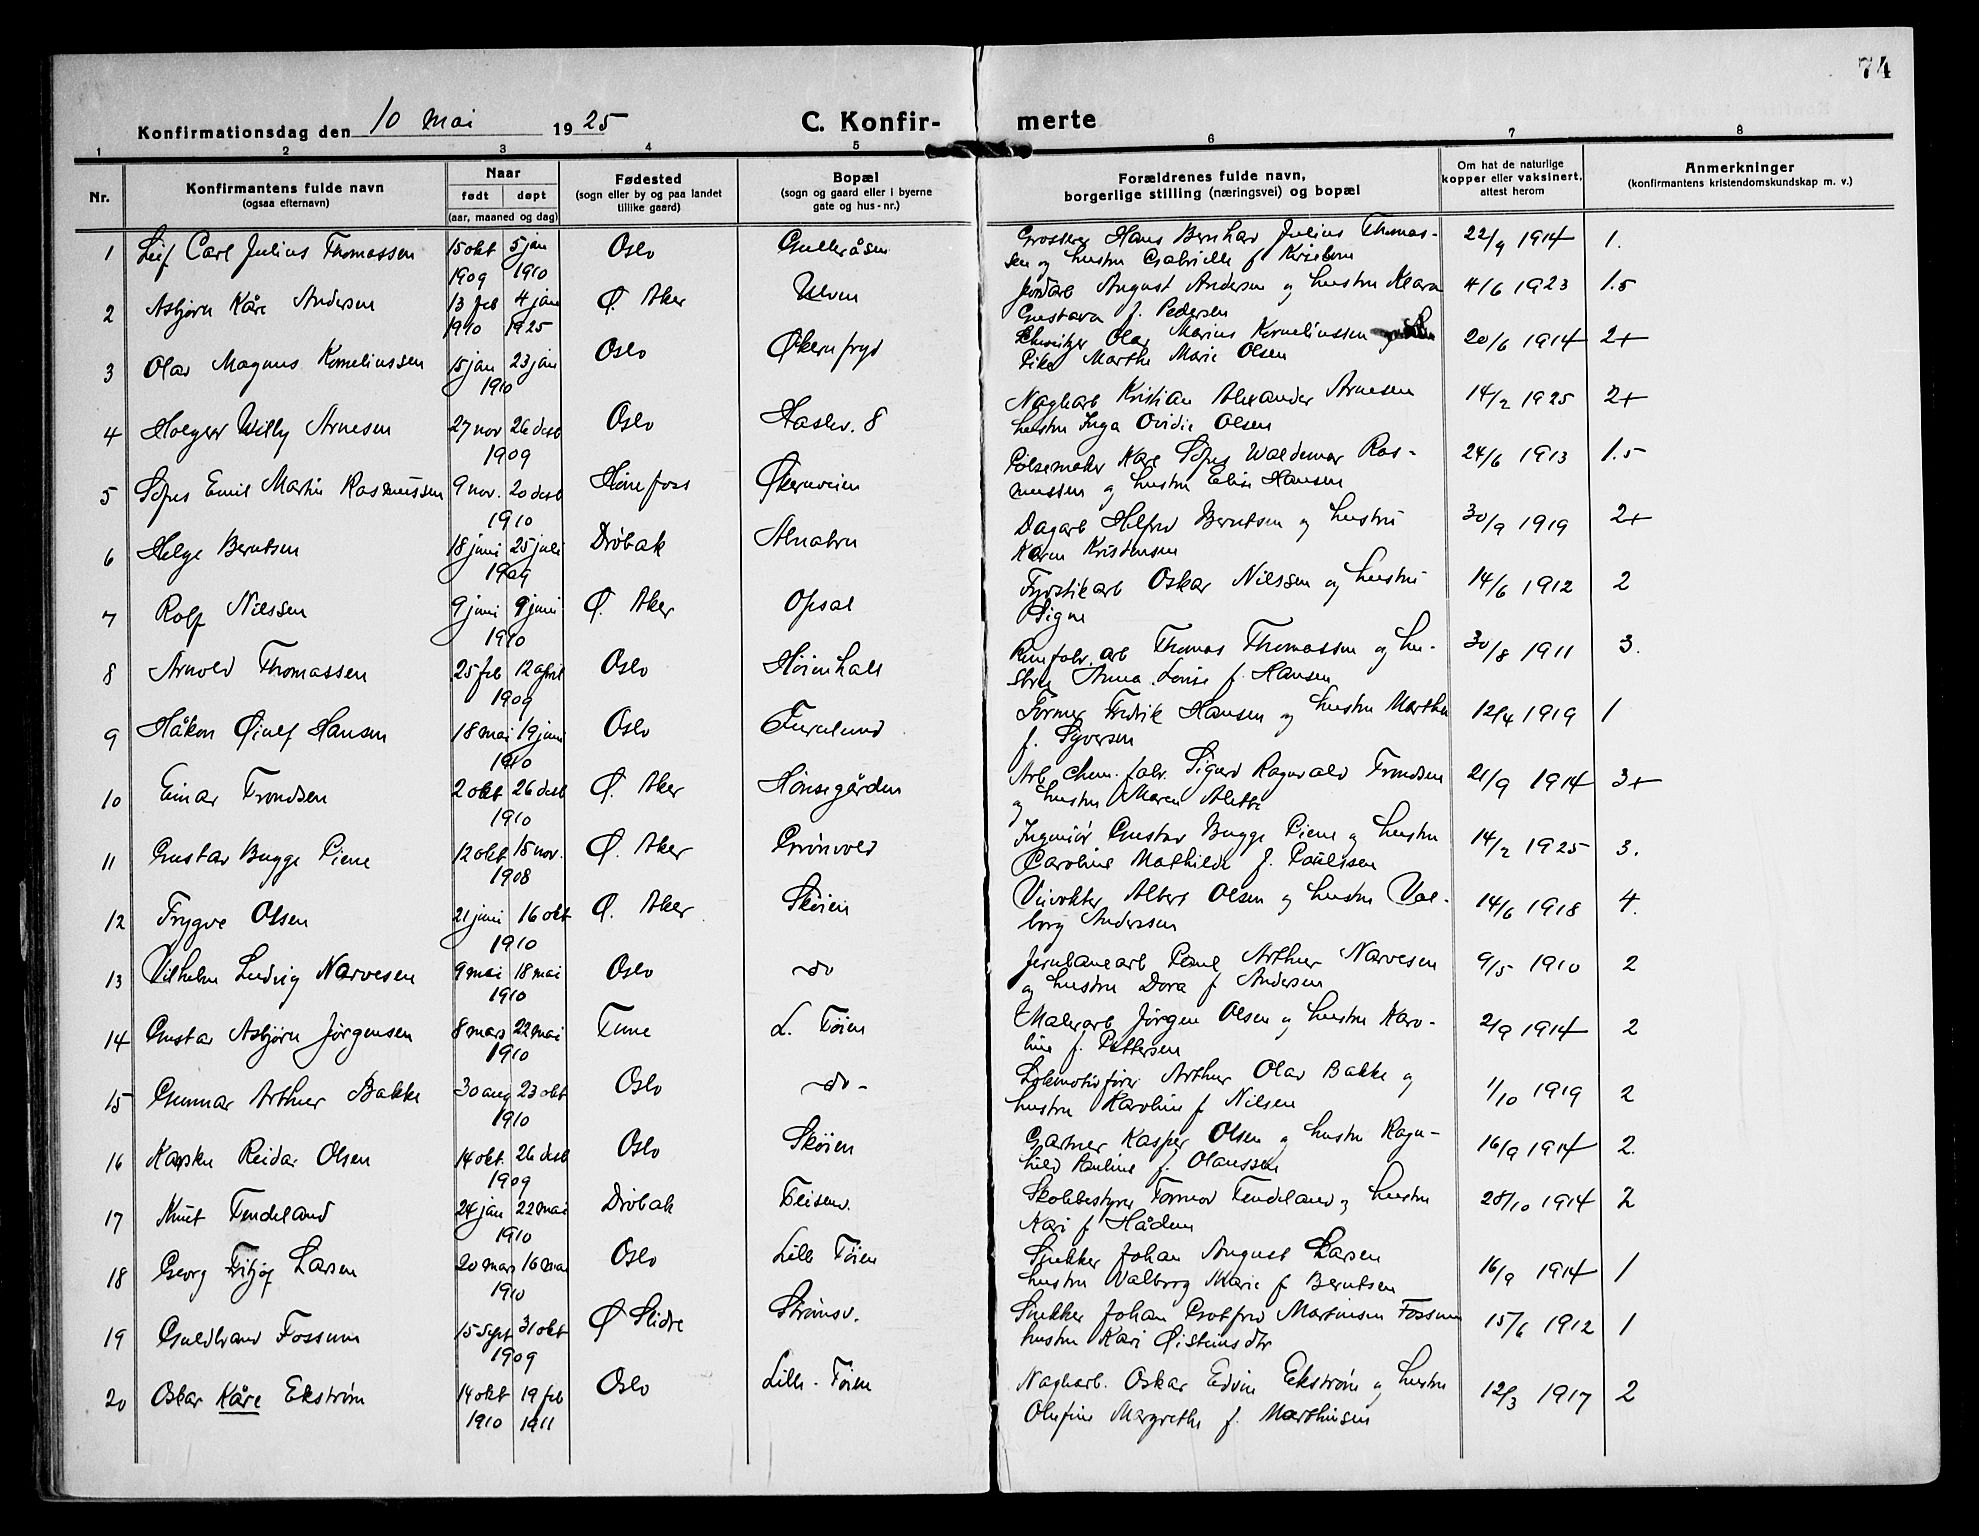 74
Konfirmationsdag den 10 mai 1925 C. Konfir- merte
1 2 3 4 5 6 7 8
Nr. Konfirmantens fulde navn (ogsaa efternavn) Naar født døpt (aar, maaned og dag) Fødested (sogn eller by og paa landet tillike gaard) Bopæl (sogn og gaard eller i byerne gate og hus-nr.) Forældrenes fulde navn, borgerlige stilling (næringsvei) og bopæl Om hat de naturlige kopper eller vaksinert, attest herom Anmerkninger (konfirmantens kristendomskundskap m. v.)
1 Leif Carl Julius Thomassen 15 okt 5 jan Oslo Gulleråsen Grosserer Hans Bernhard Julius Thomas- 22/9 1914 1.
1909 1910 sen og hustru Gabrielle f.
2 Asbjørn Kåre Andersen 13 feb 4 jan Ø. Aker Ulven Jordarb August Andersen og hustru Klara 4/6 1923 1.5
1910 1925 Gustava f. Pedersen
3 Olav Magnus Korneliussen 15 jan 23 jan Oslo Økernfryd Olav Marius Korneliussen 20/6 1914 2+
1910 Pike Marthe Marie Olsen
4 Holger Willy Arnesen 27 nov 26 desb Oslo Haslev. 8 Naglearb Kristian Alexander Arnesen 14/2 1925 2+
1909 hustru Inga Ovidie Olsen
5 Sofus Emil Martin Rasmussen 9 nov. 20 desb Hønefoss Økernveien Pølsemaker Karl Sofus Waldemar Ras- 24/6 1913 1.5
1910 mussen og hustru Elise Hansen
6 Helge Berntsen 18 juni 25 juli Drøbak Alnabru Dagarb Helfred Berntsen og hustru 30/9 1919 2+
1909 Karen Kristensen
7 Rolf Nilssen 9 juni 9 juni Ø. Aker Opsal Fyrstikarb Oskar Nilssen og hustru 14/6 1912 2
1910 Signe
8 Arnold Thomassen 25 feb 12 april Oslo Høienhall arb Thomas Thomassen og hu- 30/8 1911 3.
1909 stru Anna Lovise f. Hansen
9 Håkon Øiulf Hansen 18 mai 19 juni Oslo Furulund Former Fredrik Hansen og hustru Marthe 12/4 1919 1
1910 f. Syversen
10 Einar Trondsen 2 okt 26 desb Ø. Aker Hønsegården Arb chem. fabr. Sigurd Ragnvald Trondsen 21/9 1914 3+
1910 og hustru Maren Alette
11 Gustav Bugge Piene 12 okt 15 nov. Ø. Aker Grønvold Ingeniør Gustav Bugge Piene og hustru 14/2 1925 3.
1908 Caroline Mathilde f. Paulssen
12 Trygve Olsen 21 juni 16 okt Ø. Aker Skøien Albert Olsen og hustru Val- 14/6 1918 4.
1910 borg Anderssen
13 Vilhelm Ludvig Narvesen 9 mai 18 mai Oslo -do Jernbanearb Paul Arthur Narvesen 9/5 1910 2
1910 og hustru Dora f Andersen
14 Gustav Asbjørn Jørgensen 8 mars 22 mai Tune L. Tøien Malerarb Jørgen Olsen og hustru Karo- 2/9 1914 2
1910 line f. Pettersen
15 Gunnar Arthur Bakke 30 aug 23 okt Oslo -do- Lokomotivfører Arthur Olav Bakke og 1/10 1919 2
1910 hustru Karoline f Nilsen
16 Karsten Reidar Olsen 14 okt. 26 desb Oslo Skøien Gartner Kasper Olsen og hustru Ragn- 16/9 1914 2.
1909 hild Pauline f. Olaussen
17 Knut Tendeland 24 jan 22 mai Drøbak Teisenv. Skolebestyrer Tormod Tendeland og hustru 28/10 1914 2
1910 Kari f Hådem
18 Georg Fritjof Larsen 20 mars 16 mai Oslo Lille Tøien Snekker Johan August Larsen 16/9 1914 1
1910 hustru Valborg Marie f Berntsen
19 Guldbrand Fossum 15 sept 31 okt Ø Slidre Strømsv. Snekker Johan Martinsen Fossum 15/6 1912 1
1909 hustru Kari Øisteinsdtr
20 Oskar Kåre Ekstrøm 14 okt 19 feb Oslo Lille-Tøien Naglearb. Oskar Edvin Ekstrøm og hustru 12/3 1917 2
1910 1911 Olufine Margrethe f. Marthinsen